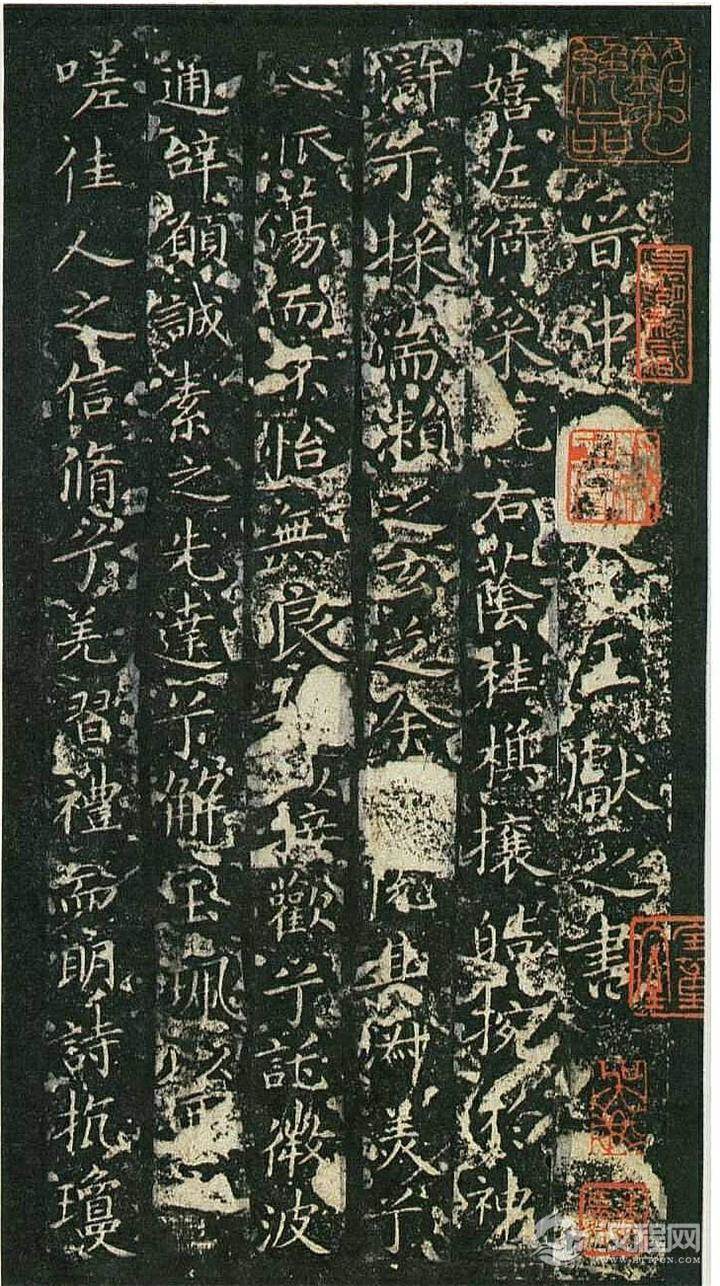 晋中令王獻之書
嬉左倚采旄右蔭桂旗攘皓捥於神
滸兮採湍瀨之玄芝余悅其淑美兮
心振蕩而不怡無良以接歡兮託微波
通辭願誠素之先達兮解玉珮以要
嗟佳人之信脩兮羌習禮而明詩抗瓊